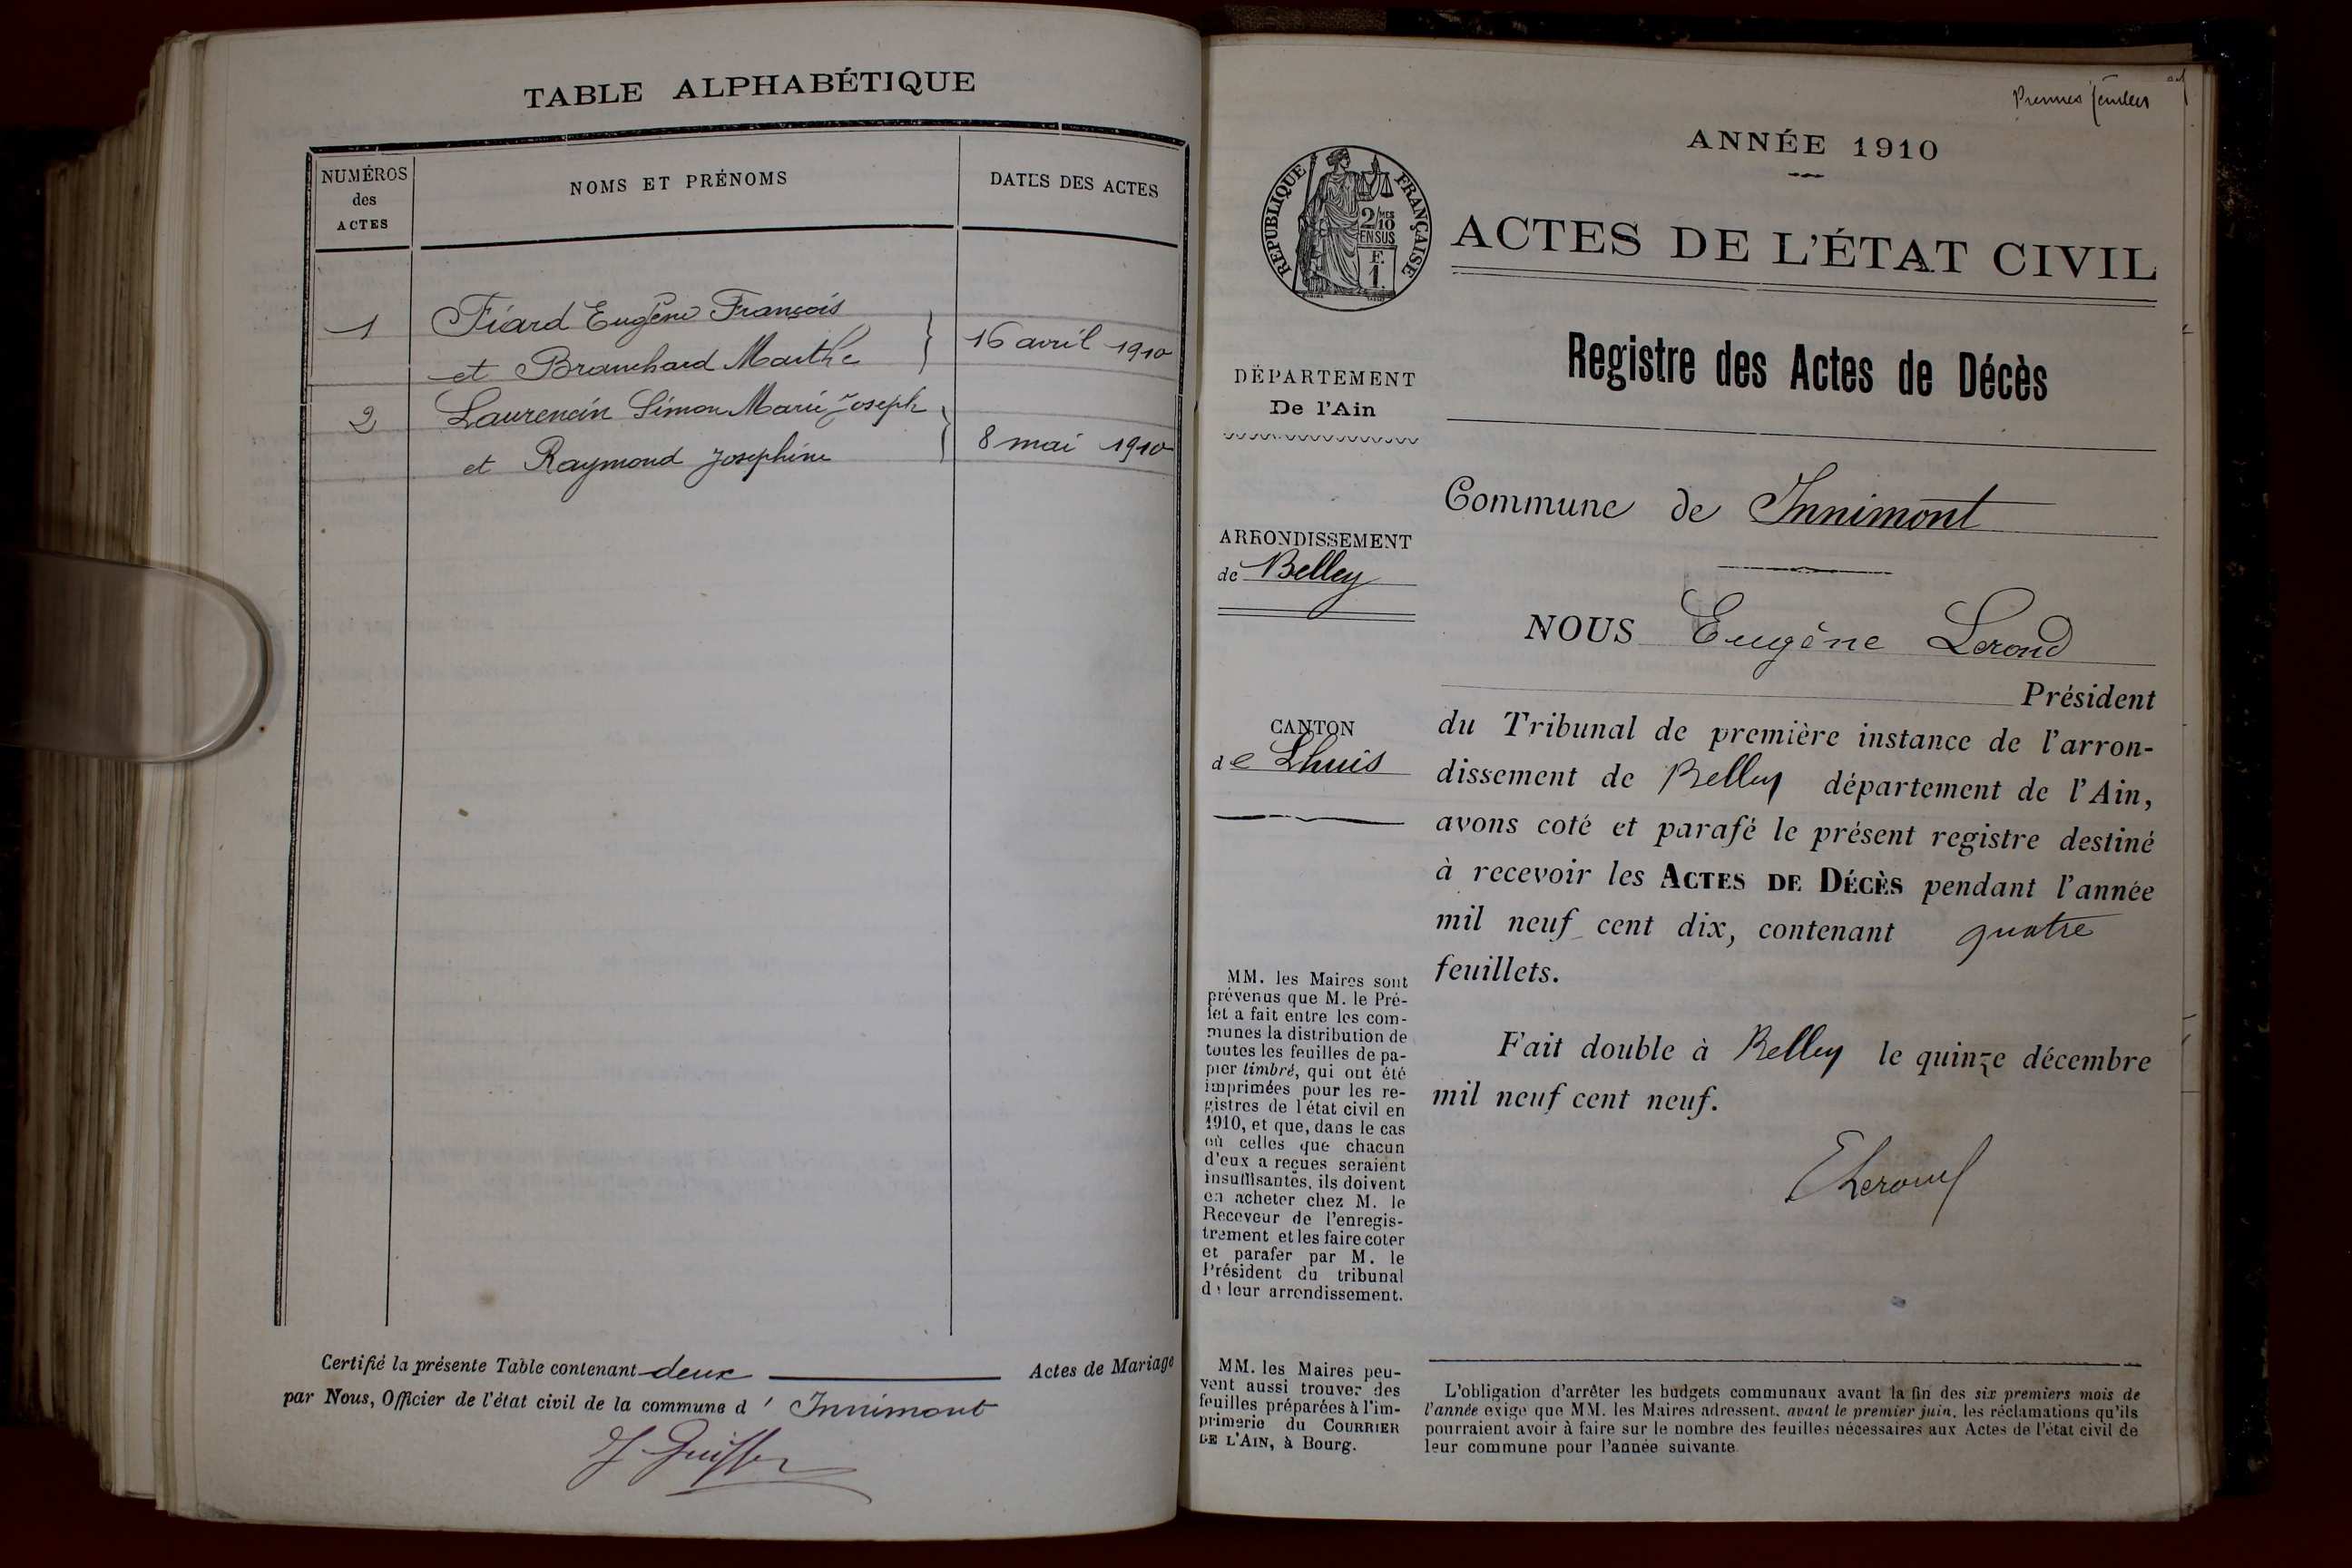 TABLE ALPHABÉTIQUE
NUMÉROS
des
ACTES
NOMS ET PRÉNOMS
DATES DES ACTES
1
Fiard Eugène François
et Branchard Marthe
16 avril 1910
2
Laurencin Simon Marie Joseph
et Raymond Joséphine
8 mai 1910
Certifié la présente Table contenant deux Actes de Mariage
par Nous, Officier de l'état civil de la commune d' Innimont
ANNÉE 1910
RÉPUBLIQUE FRANÇAISE
2/10 MES
EN SUS
F.
1.
ACTES DE L'ÉTAT CIVIL
Registre des Actes de Décès
DÉPARTEMENT
De l'Ain
ARRONDISSEMENT
de Belley
CANTON
de Lhuis
MM. les Maires sont
prévenus que M. le Pré-
fet a fait entre les com-
munes la distribution de
toutes les feuilles de pa-
pier timbré, qui ont été
imprimées pour les re-
gistres de l'état civil en
1910, et que, dans le cas
où celles que chacun
d'eux a reçues seraient
insuffisantes, ils doivent
en acheter chez M. le
Receveur de l'enregis-
trement et les faire coter
et parafer par M. le
Président du tribunal
de leur arrondissement.
MM. les Maires peu-
vent aussi trouver des
feuilles préparées à l'im-
primerie du COURRIER
DE L'AIN, à Bourg.
Commune de Innimont
NOUS Eugène Lerond
Président
du Tribunal de première instance de l'arron-
dissement de Belley département de l'Ain,
avons coté et parafé le présent registre destiné
à recevoir les ACTES DE DÉCÈS pendant l'année
mil neuf cent dix, contenant quatre
feuillets.
Fait double à Belley le quinze décembre
mil neuf cent neuf.
ELerond
L'obligation d'arrêter les budgets communaux avant la fin des six premiers mois de
l'année exige que MM. les Maires adressent, avant le premier juin, les réclamations qu'ils
pourraient avoir à faire sur le nombre des feuilles nécessaires aux Actes de l'état civil de
leur commune pour l'année suivante.